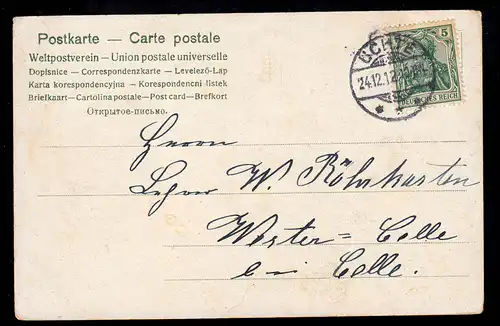 Postkarte — Carte postale
Weltpostverein – Union postale universelle
Dopisnice – Correspondenzkarte – Levelező-Lap
Karta korespondencyjna – Korespondencni listek
Briefkaart – Cartolina postale – Post card – Brefkort
Открытое-письмо.
UCHTE
24.12.
5
DEUTSCHES REICH
Herrn
Lehrer W. Röhrkarten
Wester=Celle
bei Celle.